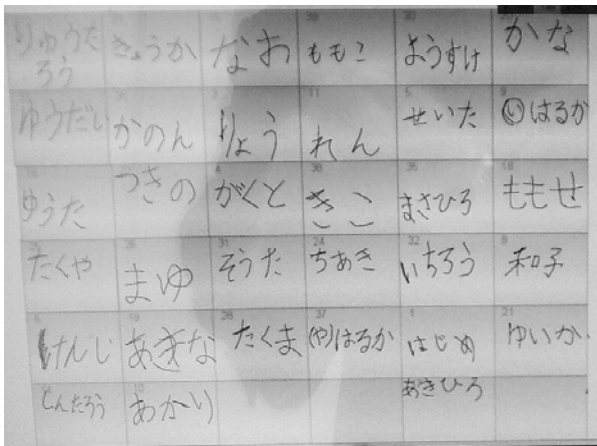 りゅうたろう きょうか なお ももこ ようすけ かな
ゆうだい かのん りょう れん せいた (い)はるか
ゆうた つきの がくと きこ まさひろ ももせ
たくや まゆ そうた ちあき いちろう 和子
けんじ あきな たくま (や)はるか はじめ ゆいか
しんたろう あかり あきひろ